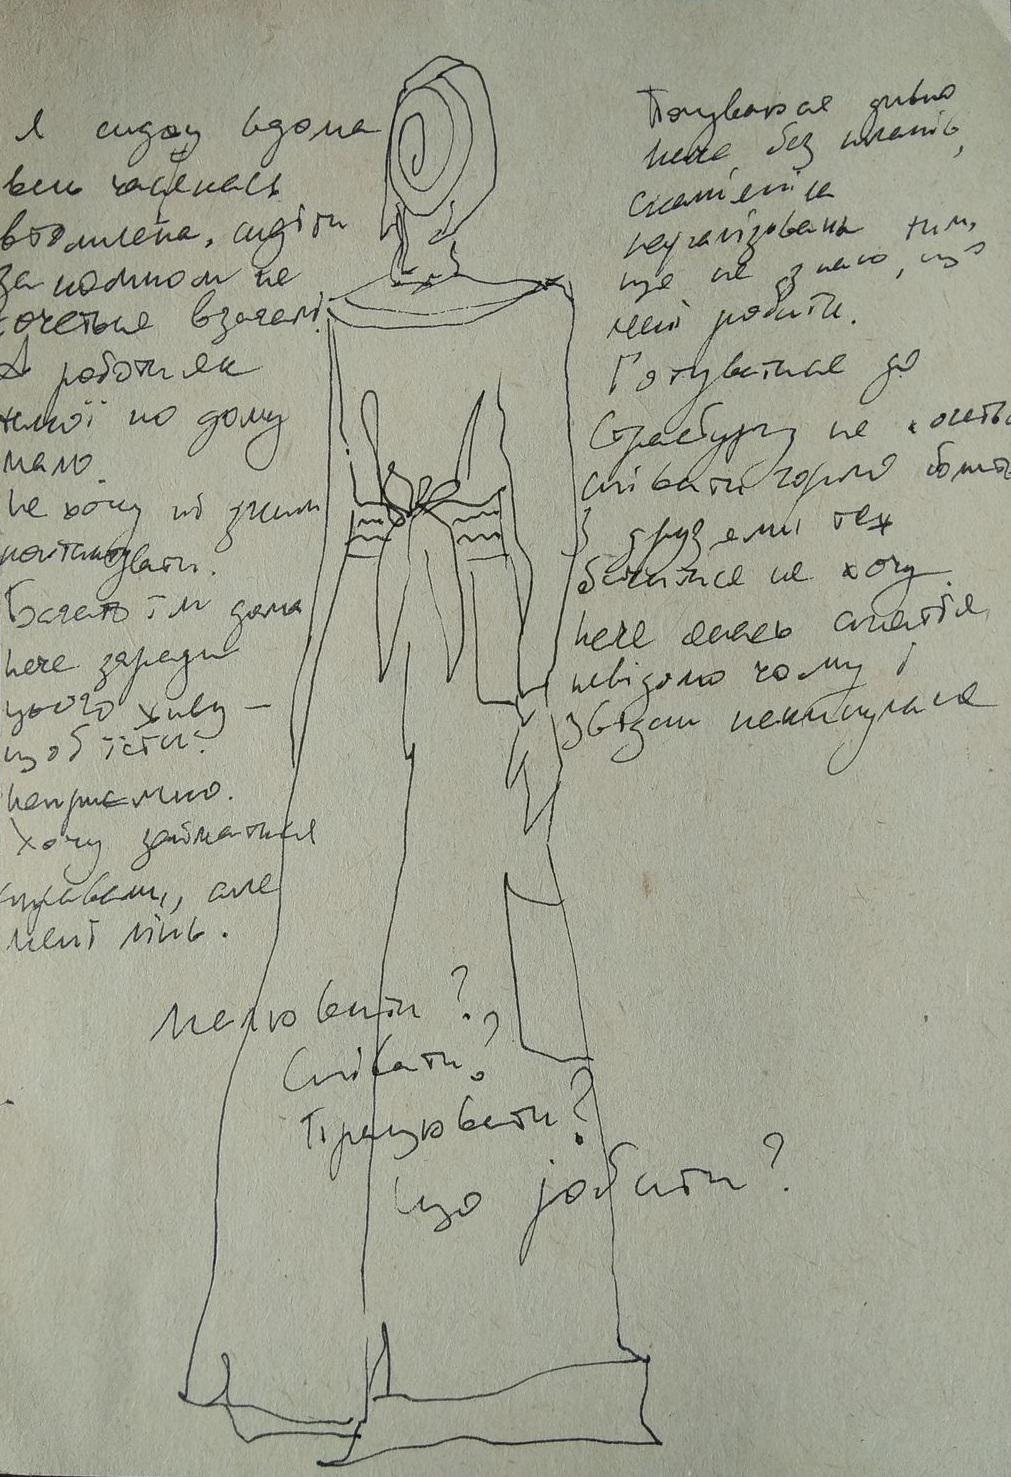 Я сиджу вдома
весь час якась
втомлена, сидіти
за компом не
хочеться взагалі.
А роботи як
такої по дому
мало.
Не хочу ні з ким
контактувати.
Багато їм дома
наче заради
цього живу –
щоб їсти.
Неприємно.
Хочу займатися
справами, але
мені лінь.
Почуваюся дивно
наче без планів,
скам'яніла
паралізована тим,
що не знаю, що
мені робити.
Готуватися до
Страсбургу не хочеться
співати горло болить
З друзями теж
бачитися не хочу.
Наче якась апатія,
невідомо чому і
звідки
Малювати?,
Співати?
Працювати?
Що робити?